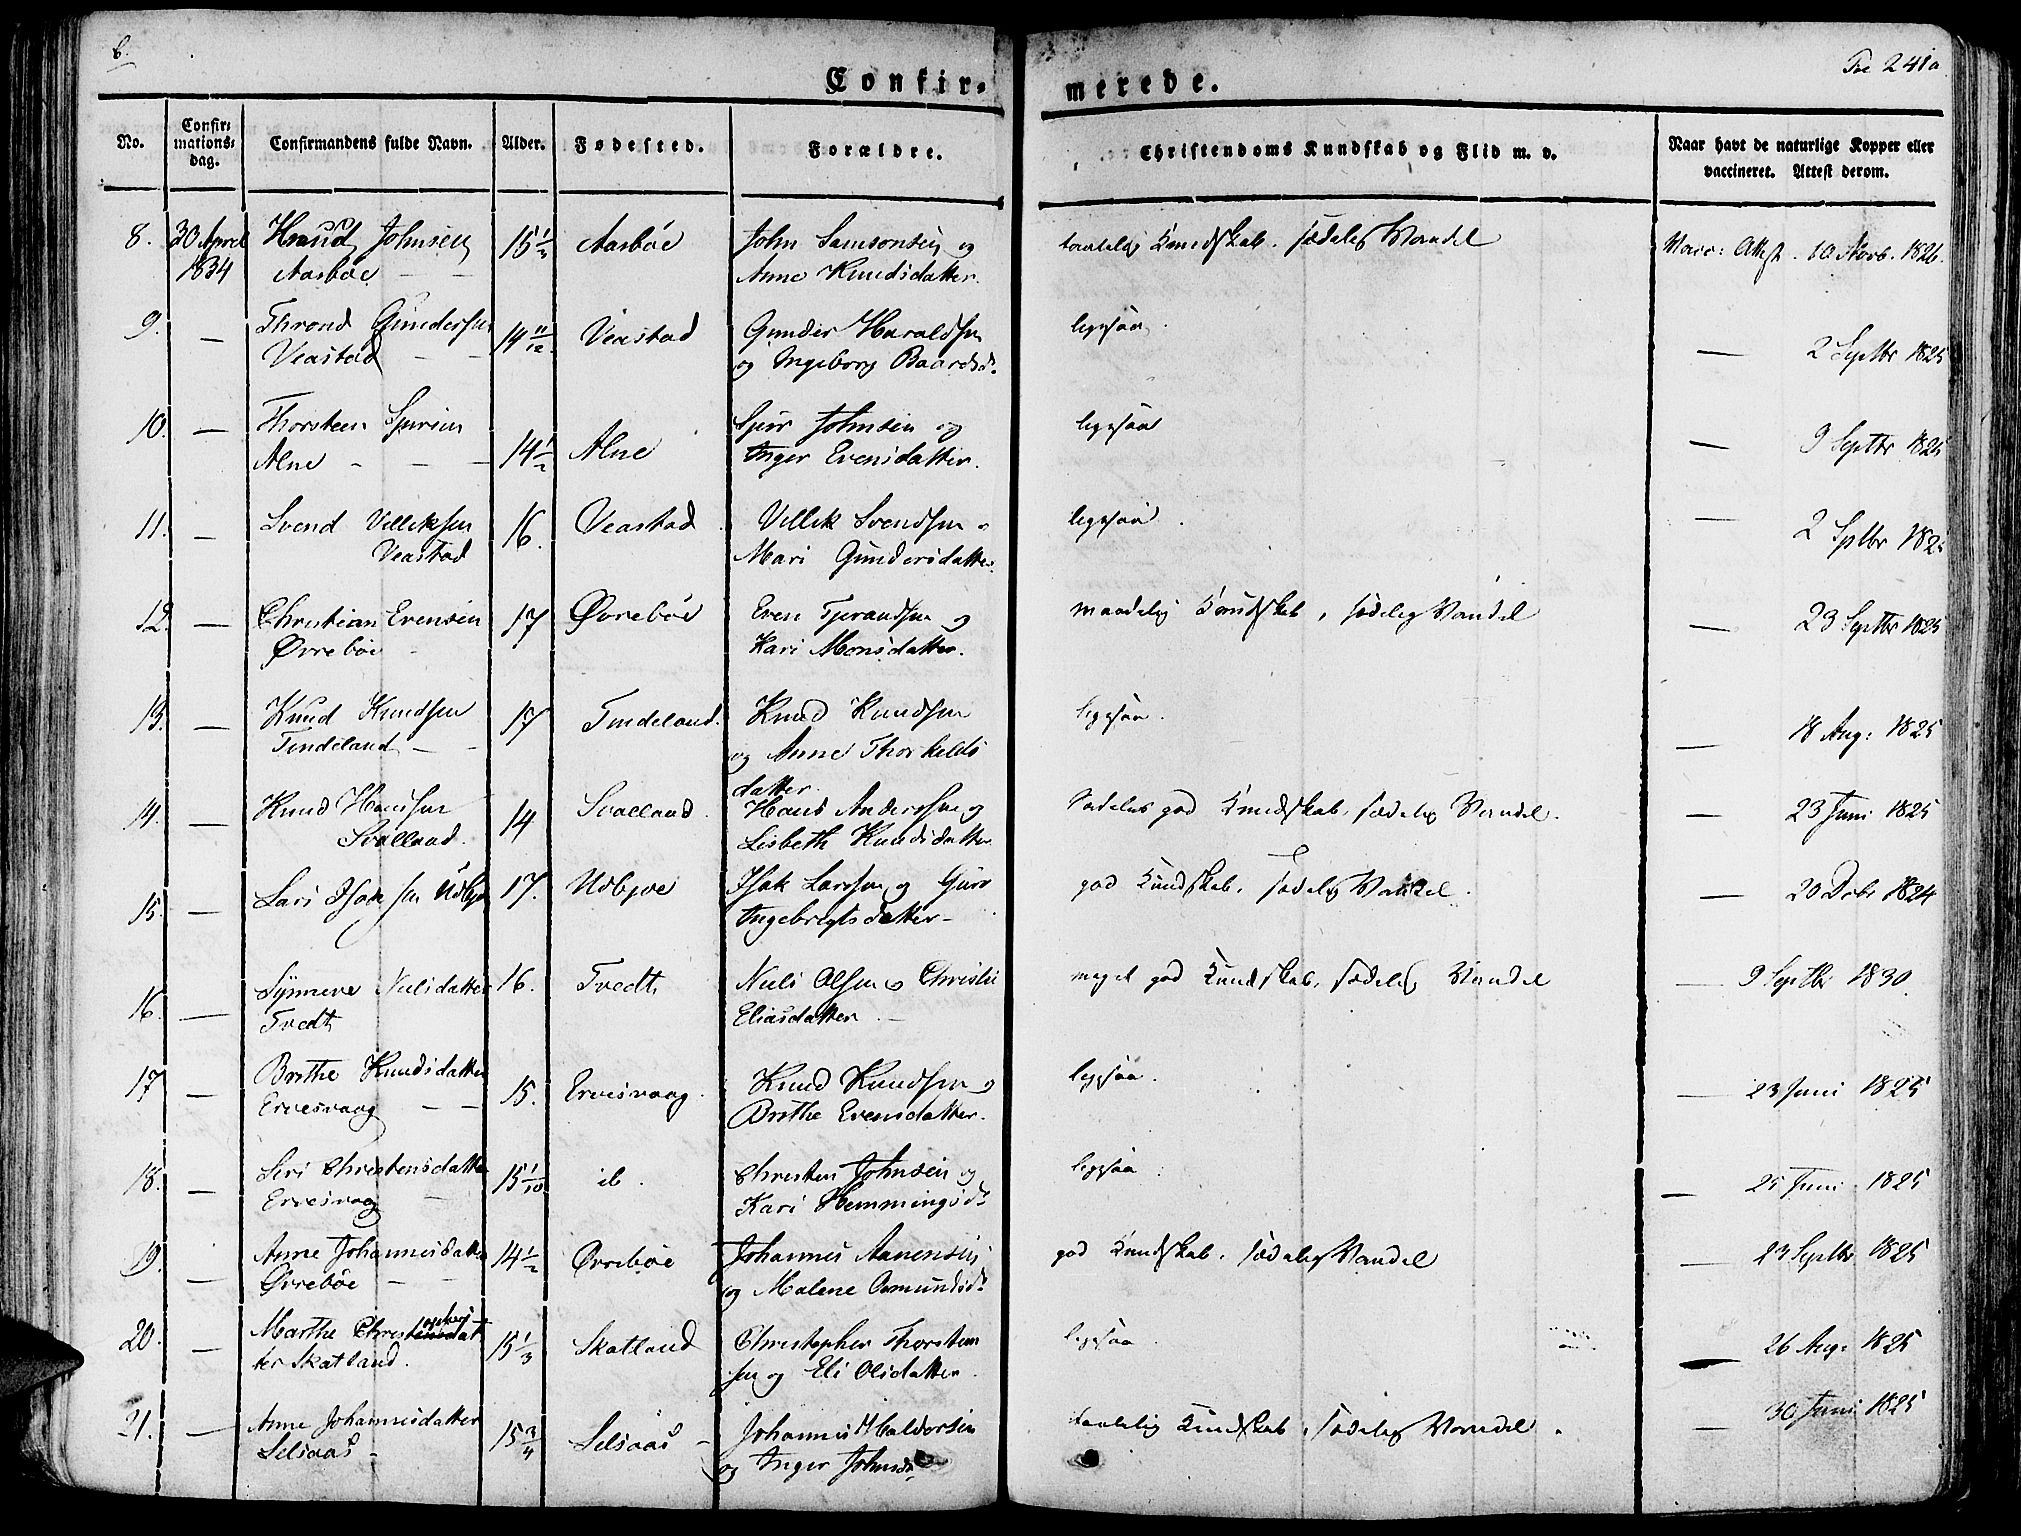 6.
Fol 241a
Confir-
merede.
No.
Confir-
mations-
dag.
Confirmandens fulde Navn.
Alder.
Fødested.
Forældre.
Christendoms Kundskab og Flid m. v.
Naar havt de naturlige Kopper eller
vaccineret. Attest derom.
8. 30 April Knud Johnsen 15 1/3 Aasbøe John Samsonsen og taalelig Kundskab. sædelig Vandel Vacc: Attest. 10 Novb. 1826.
1834 Aasbøe — — Anne Knudsdatter.
9. — Thrond Gundersen 14 11/12. Veastad Gunder Haraldsen ligesaa. — 2 Septbr 1825
Veastad — — og Ingeborg Baardsd.
10. — Thorsteen 14 1/2 Alne Johnsen og ligesaa — 9 Septbr 1825
Alne — — — Inger Evensdatter.
11. — Svend Villiksen 16. Veastad Villik Svendsen o ligesaa. — 2 Sptbr 1825
Veastad Mari Gundersdatter.
12. — Christian Evensen 17 Øvrebøe Even Tjerandsen og maadelig Kundskab, sædelig Vandel — 23 Septbr 1825
Øvrebøe Kari Monsdatter.
13. — Knud Knudsen 17 Tindeland. Knud Knudsen ligesaa. — 18 Aug: 1825
Tindeland — — og Anne Thorkelds
datter.
14. — Knud Hansen 14 Svalland. Hans Andersen og god Kundskab, sædelig Vandel. — 23 Juni 1825
Svalland. Lisbeth Knudsdatter
15. — Lars Isaksen Udbjoe 17. Udbjoe Isak Larsen og Guro god Kundskab. sædelig Vandel. — 20 Debr 1824
Ingebregtsdatter —
16. — Synneve Nielsdatter 16. Tvedt Niels Olsen o Christie meget god Kundskab, sædelig Vandel — 9 Septbr 1830.
Tvedt Eliasdatter —
17 — Brithe Knudsdatter 15. Ervesvaag. Knud Knudsen o ligesaa. — 23 Juni 1825
Ervesvaag — — Brithe Evensdatter.
18. — Siri Christensdatter 15 1/10 ib. Christen Johnsen og ligesaa — 25 Juni 1825
Ervesvaag — Kari Hemmingsd.
19. — Anne Johannesdatter 14 1/2 Øvrebøe Johannes Aanensen god Kundskab. sædelig Vandel — 23 Septbr 1825
Øvrebøe — — og Malene Osmundsd.
20. — Marthe Christensdat 15 1/3 Skatland Christopher Thorsteen ligesaa. — 26 Aug: 1825
ter Skatland. sen og Eli Olsdatter.
21. — Anne Johannesdatter 15 3/4 Selsaas — Johannes Haldorsen taalelig Kundskab, sædelig Vandel. — 30 Juni 1825
Selsaas — og Inger Johnsd.